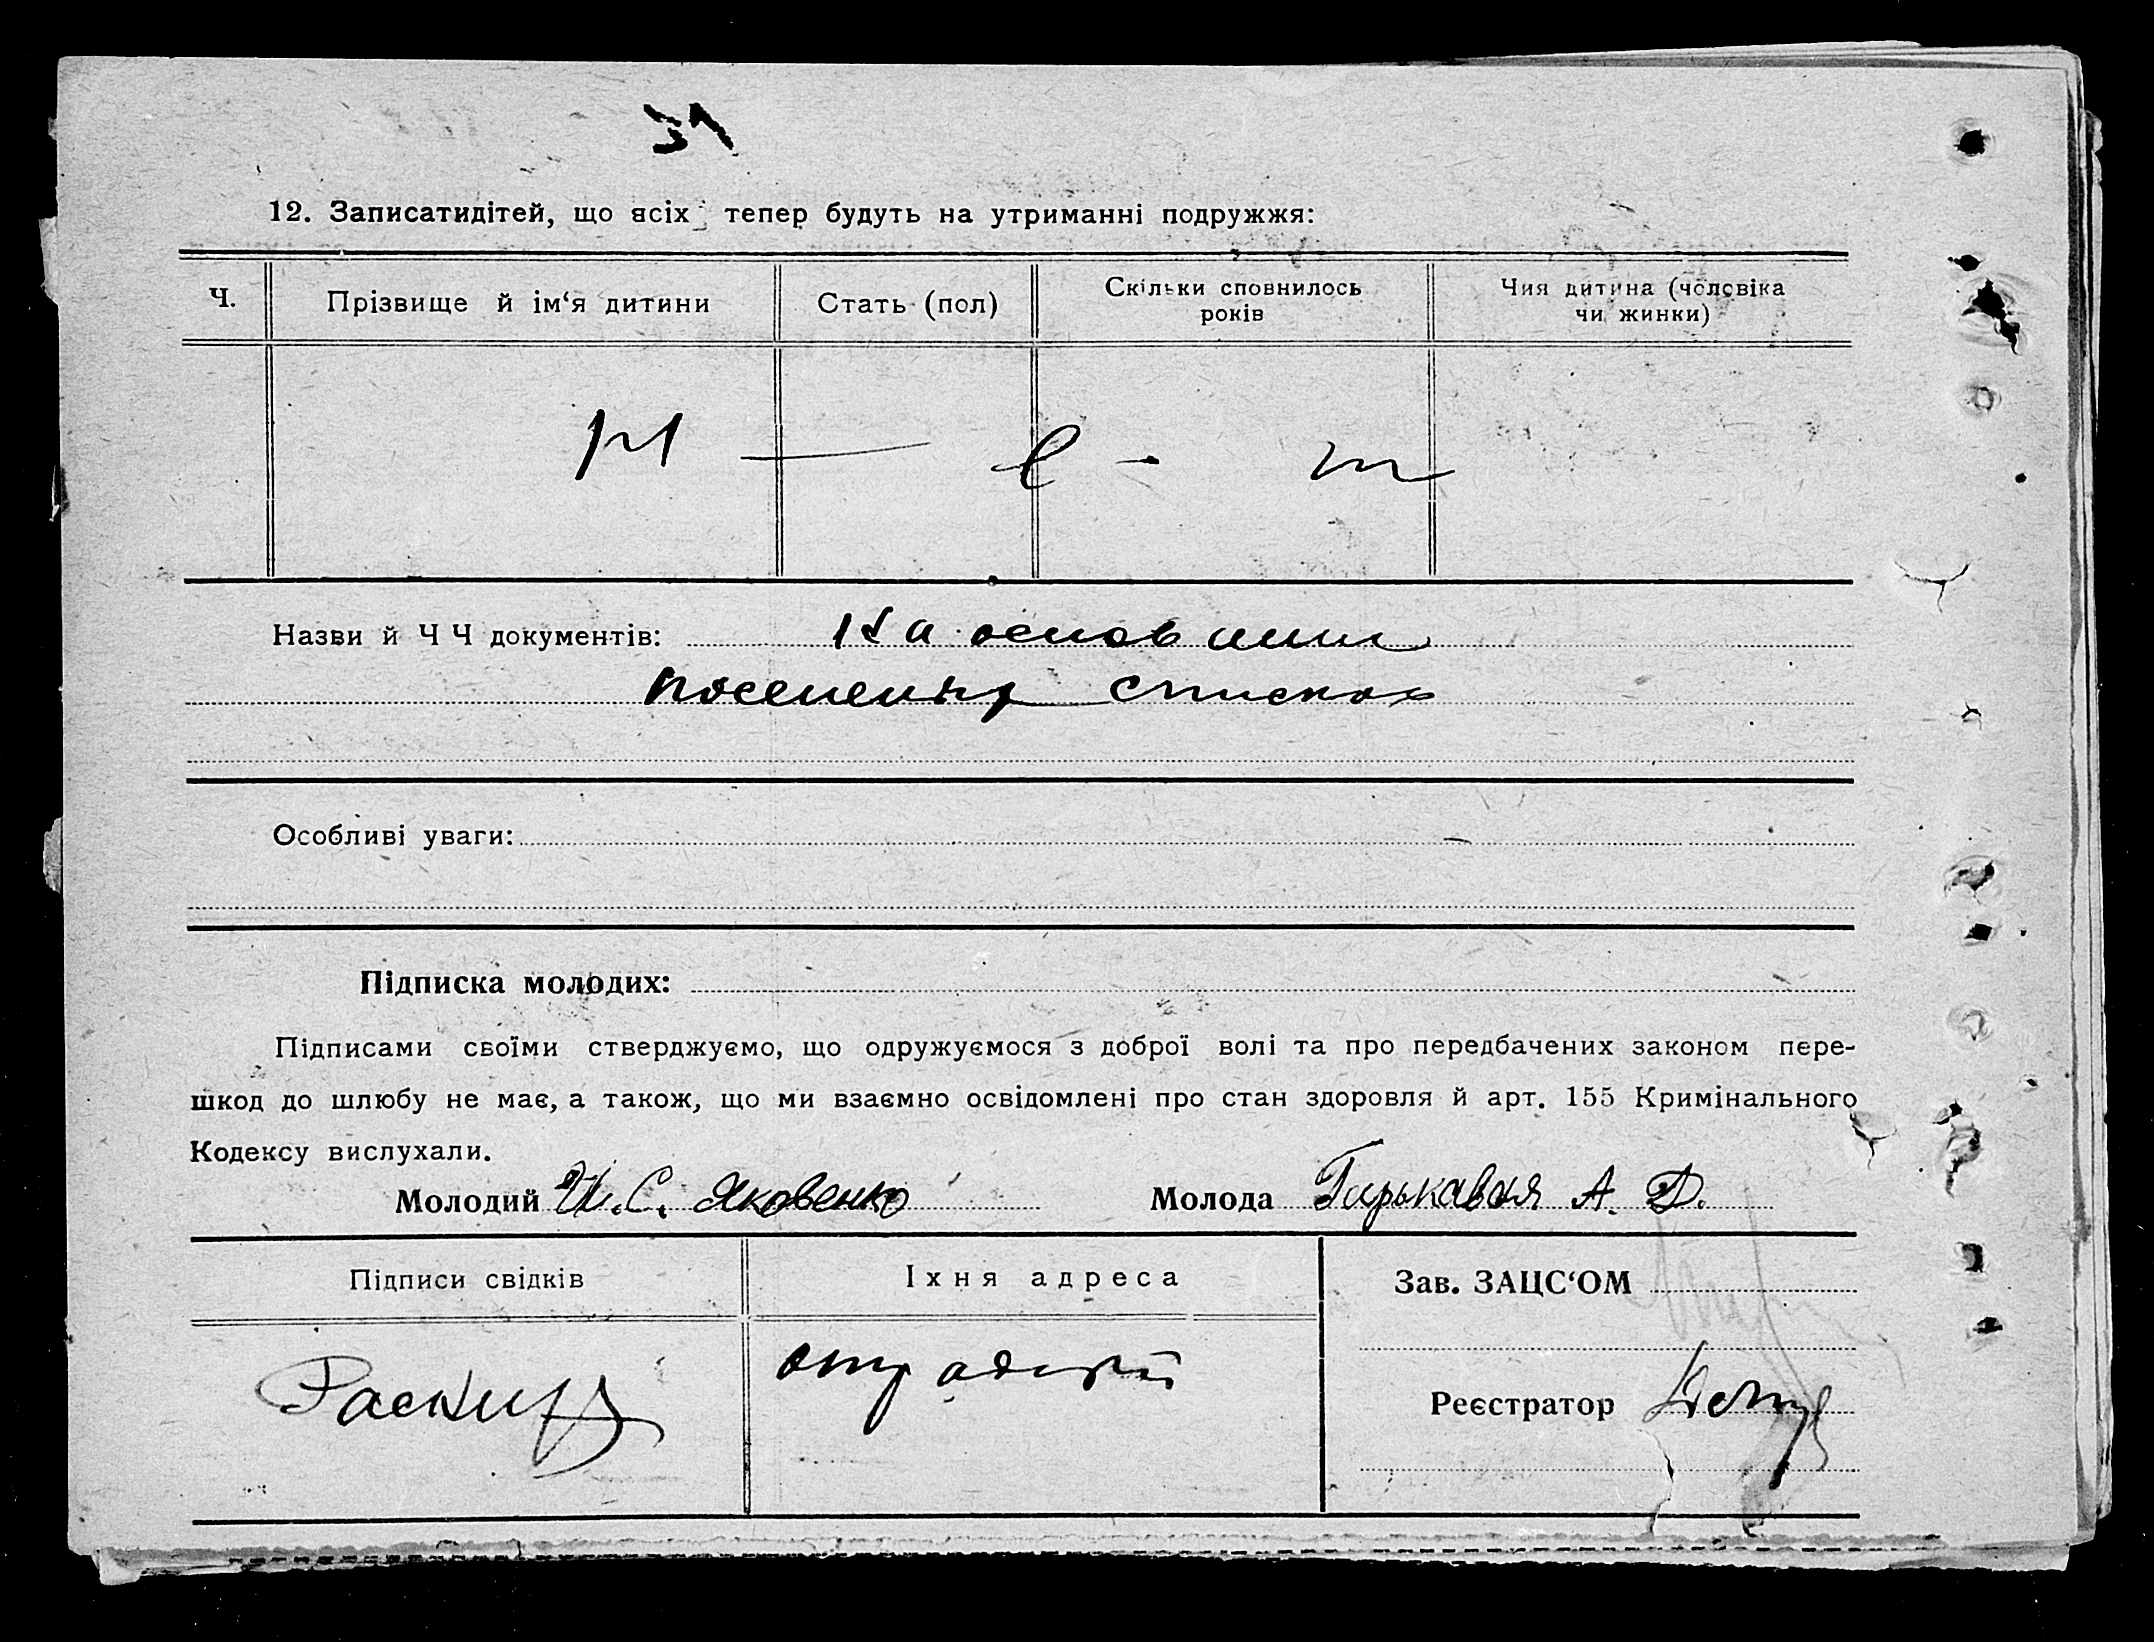 31
12. Записатидітей, що всіх тепер будуть на утриманні подружжя:
Ч.
Прізвище й ім‘я дитини
Стать (пол)
Скільки сповнилось
років
Чия дитина (чоловіка
чи жинки)
н — е - т
Назви й Ч Ч документів: На основании
поселенну списков
Особливі уваги:
Підписка молодих:
Підписами своїми стверджуємо, що одружуємося з доброї волі та про передбачених законом пере-
шкод до шлюбу не має, а також, що ми взаємно освідомлені про стан здоровля й арт. 155 Кримінального
Кодексу вислухали.
Молодий И. С. Яковенко Молода Гирькавая А. Д.
Підписи свідків
Іхня адреса
Зав. ЗАЦС‘ОМ
Реєстратор